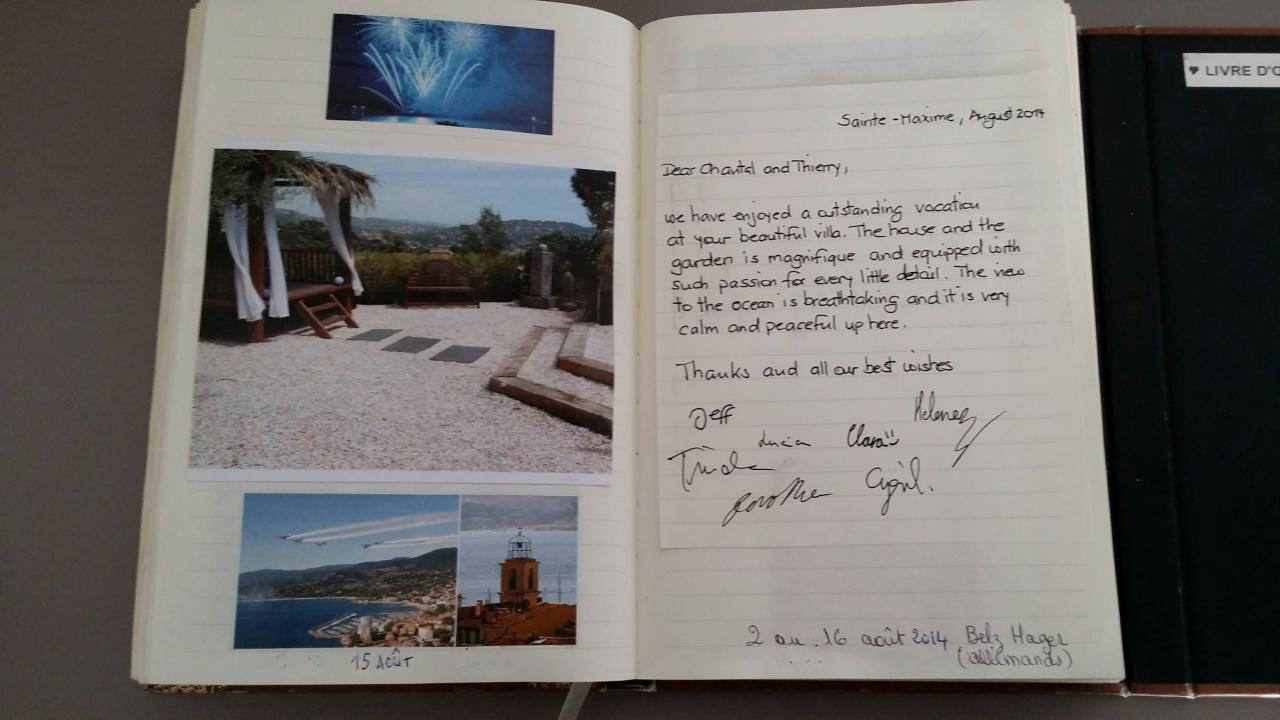 15 AOÛT
LIVRE D'O
Sainte-Maxime, August 2014
Dear Chantal and Thierry,
we have enjoyed a outstanding vacation
at your beautiful villa. The house and the
garden is magnifique and equipped with
such passion for every little detail. The view
to the ocean is breathtaking and it is very
calm and peaceful up here.
Thanks and all our best wishes
Jeff Helene
Lucia Clara
Cyril.
2 au 16 août 2014 Belz Hager
(allemands)